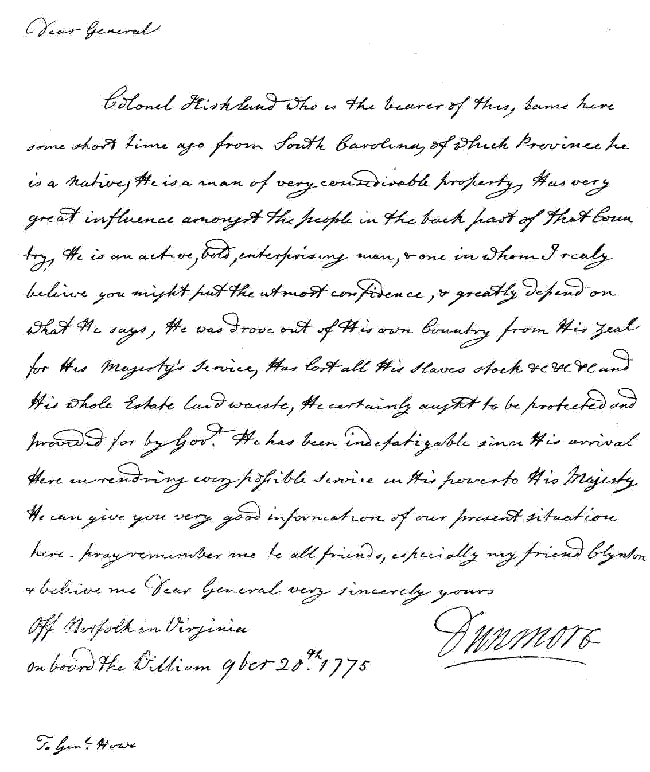 Dear General
Colonel Kirkland who is the bearer of this, came here
some short time ago from South Carolina, of which Province he
is a native, He is a man of very considirable property, Has very
great influence amongst the people in the back part of that Coun
try, He is an active, bold, enterprising man, & one in whom I realy
believe you might put the utmost confidence, & greatly depend on
what He says, He was drove out of His own Country from His zeal
for His Majesty's service, Has lost all His slaves stock &c &c &c and
His whole Estate laid waiste, He certainly aught to be protected and
provided for by Govt. He has been indefatigable since His arrival
Here in rendring every possible service in His power to His Majesty
He can give you very good information of our present situation
here. pray remember me to all friends, especially my friend Clynton
& believe me Dear General very sincerely yours
Off Norfolk in Virginia
on board the William 9ber 20th. 1775
Dunmore
To Genl. Howe